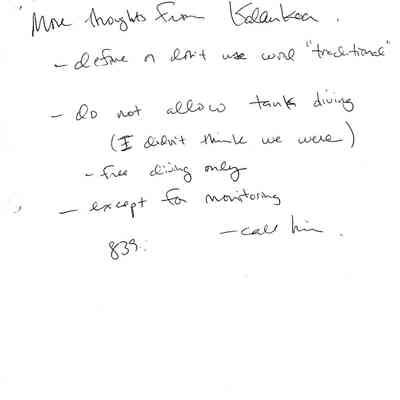 More thoughts from Kalankoa.
- define or don't use word "traditional"
- do not allow tank diving
(I didn't think we were)
- free diving only
- except for monitoring
- call him.
839: